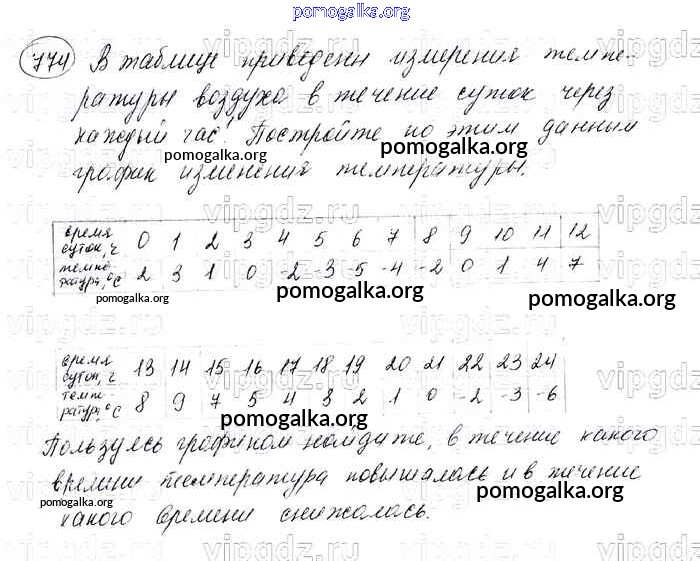 pomogalka.org
774 В таблице приведены измерения темпе-
ратуры воздуха в течение суток через
каждый час. Постройте по этим данным
pomogalka.org pomogalka.org
график изменения температуры.
время суток, ч 0 1 2 3 4 5 6 7 8 9 10 11 12
темпе-ратура, °С 2 3 1 0 -2 -3 -5 -4 -2 0 1 4 7
pomogalka.org pomogalka.org pomogalka.org
время суток, ч 13 14 15 16 17 18 19 20 21 22 23 24
темпе-ратура, °С 8 9 7 5 4 3 2 1 0 -2 -3 -6
pomogalka.org
Пользуясь графиком найдите, в течение какого
времени температура повышалась и в течение
pomogalka.org pomogalka.org
какого времени снижалась.
vipgdz.ru